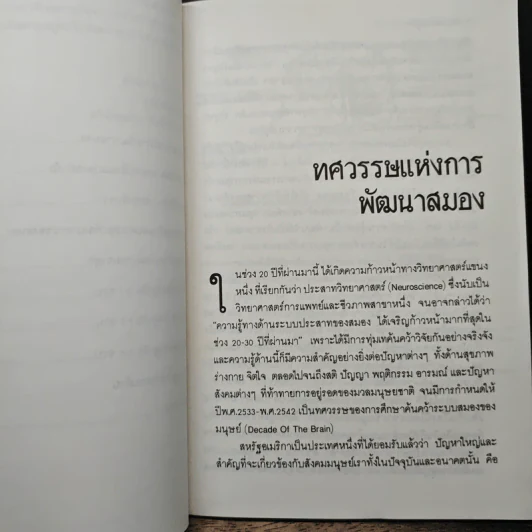 ทศวรรษแห่งการ
พัฒนาสมอง
ในช่วง 20 ปีที่ผ่านมานี้ ได้เกิดความก้าวหน้าทางวิทยาศาสตร์แขนง
หนึ่ง ที่เรียกกันว่า ประสาทวิทยาศาสตร์ (Neuroscience) ซึ่งนับเป็น
วิทยาศาสตร์การแพทย์และชีวภาพสาขาหนึ่ง จนอาจกล่าวได้ว่า
"ความรู้ทางด้านระบบประสาทของสมอง ได้เจริญก้าวหน้ามากที่สุดใน
ช่วง 20-30 ปีที่ผ่านมา" เพราะได้มีการทุ่มเทค้นคว้าวิจัยกันอย่างจริงจัง
และความรู้ด้านนี้ก็มีความสำคัญอย่างยิ่งต่อปัญหาต่างๆ ทั้งด้านสุขภาพ
ร่างกาย จิตใจ ตลอดไปจนถึงสติ ปัญญา พฤติกรรม อารมณ์ และปัญหา
สังคมต่างๆ ที่ท้าทายการอยู่รอดของมวลมนุษยชาติ จนมีการกำหนดให้
ปีพ.ศ.2533-พ.ศ.2542 เป็นทศวรรษของการศึกษาค้นคว้าระบบสมองของ
มนุษย์ (Decade Of The Brain)
สหรัฐอเมริกาเป็นประเทศหนึ่งที่ได้ยอมรับแล้วว่า ปัญหาใหญ่และ
สำคัญที่จะเกี่ยวข้องกับสังคมมนุษย์เราทั้งในปัจจุบันและอนาคตนั้น คือ